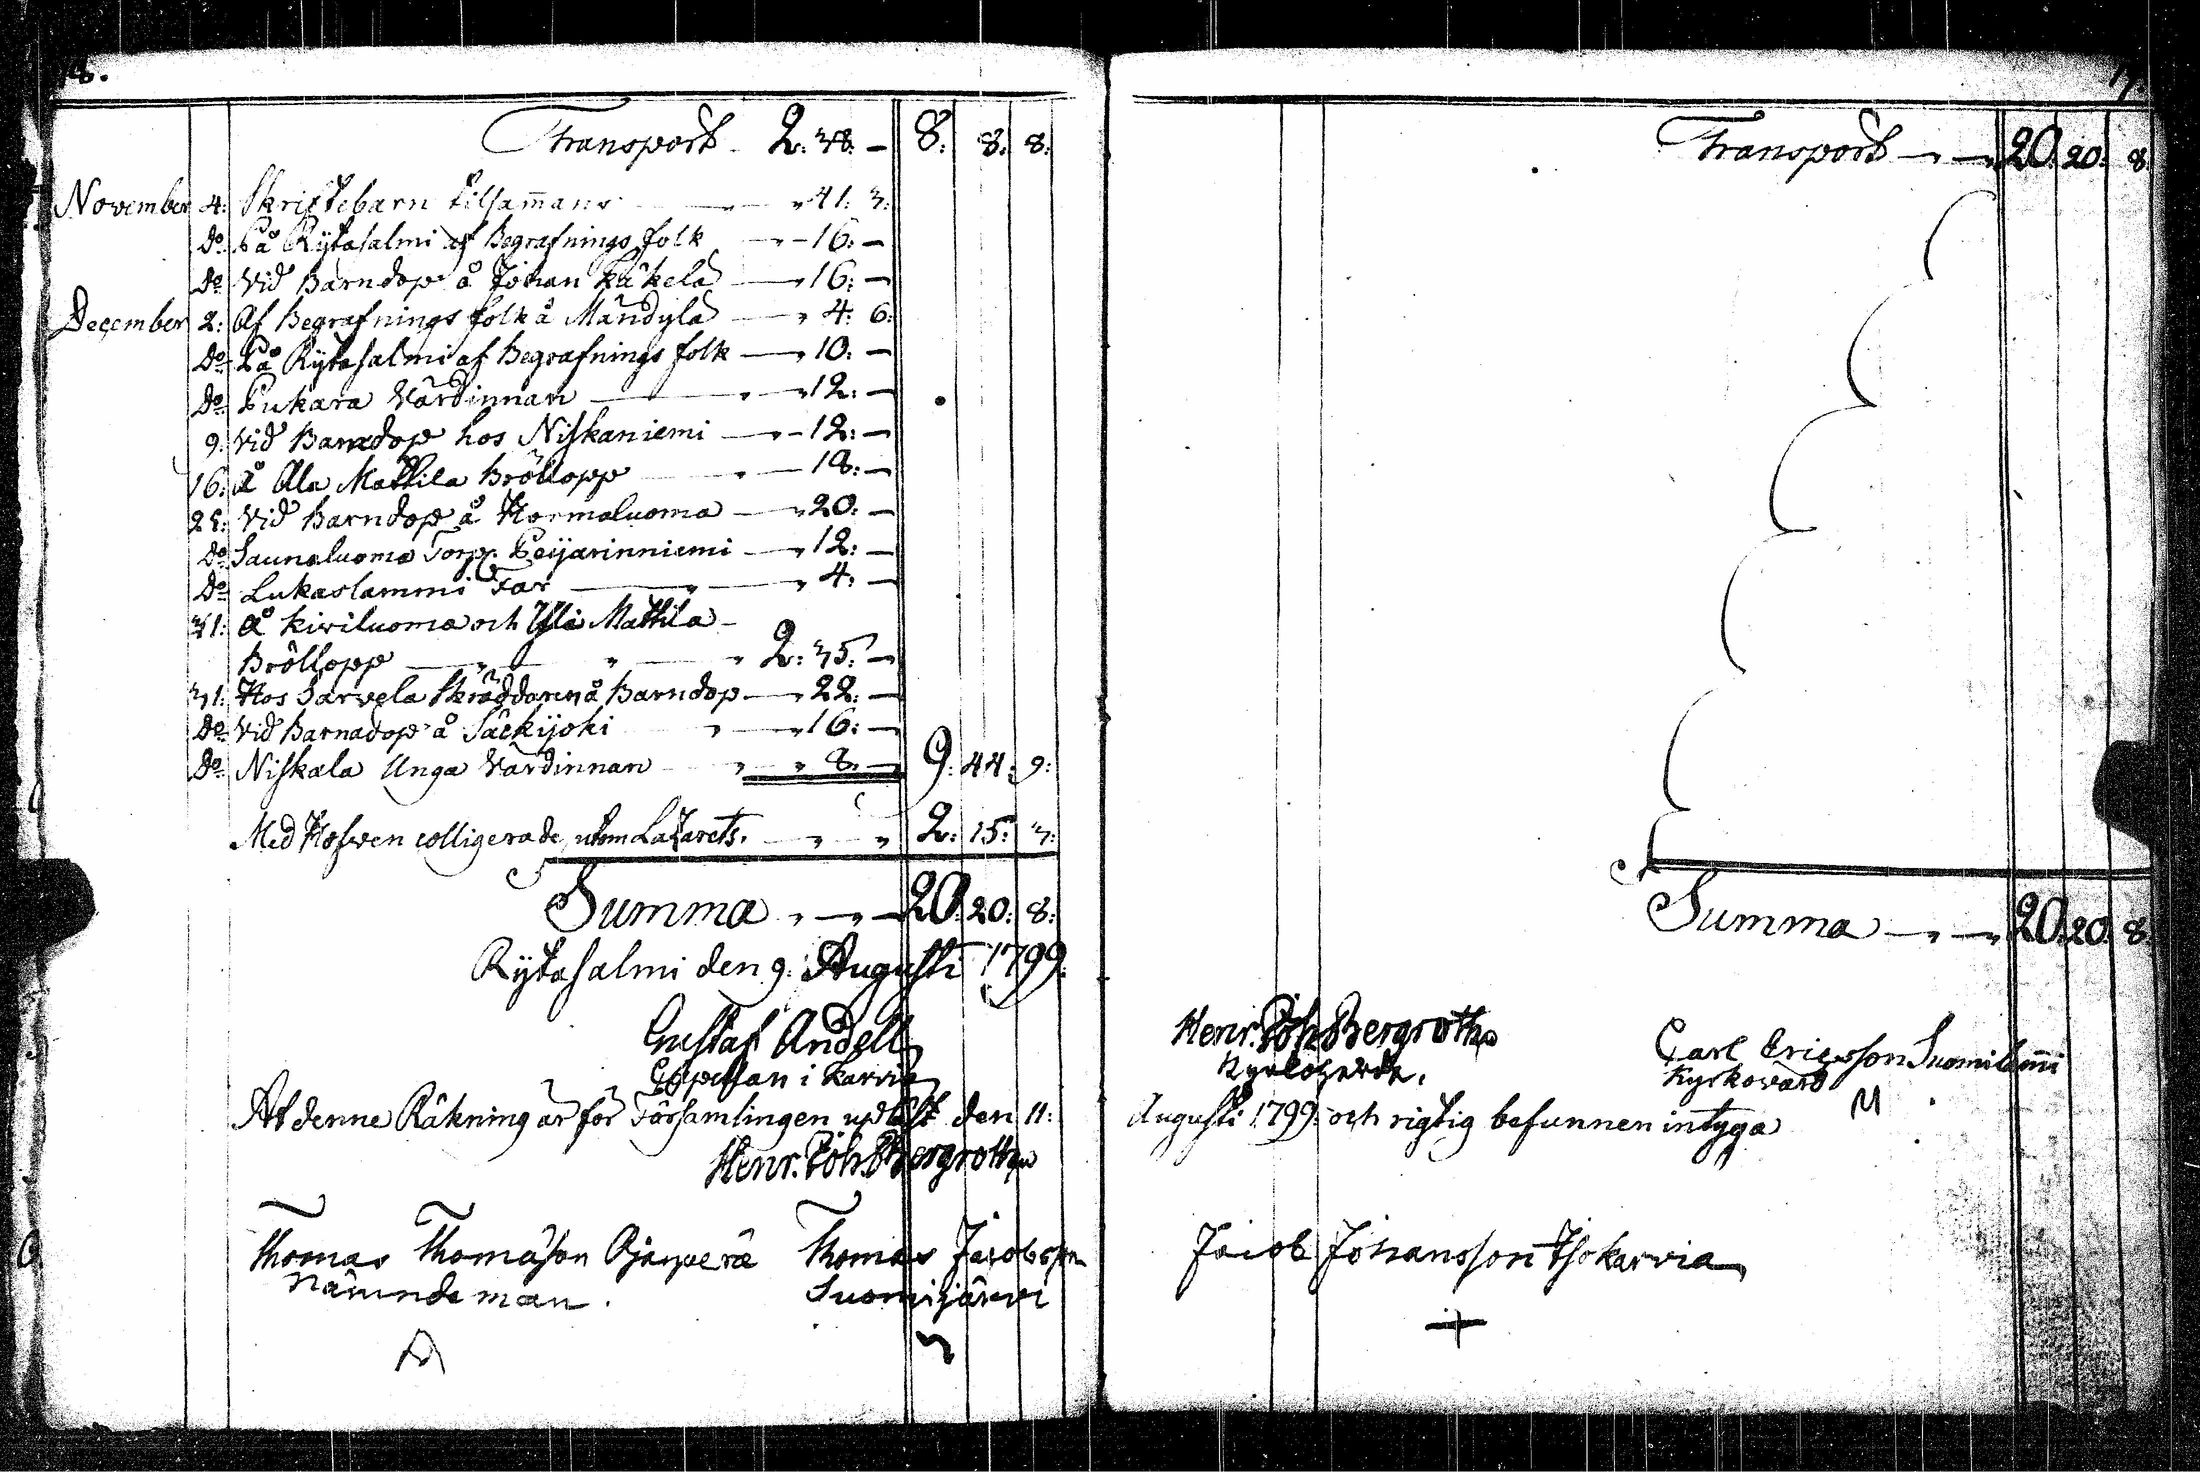 Transport 2: 38. — 8: 8: 8:
November 4: Skriftebarn tilsam̄ans 41: 3:
Do På Rytasalmi af Begrafnings folk 16: —
Do Vid Barndop å Johan Käkelä 16: —
December 2: Af Begrafnings folk å Mändylä 4: 6:
Do På Rytasalmi af Begrafnings folk 10: —
Do Pukara Värdinnan 12: —
9: Vid Barndop hos Niskaniemi 12: —
16: Å Ala Mattila Bröllopp 18: —
25: Vid Barndop å Hormaluoma 20: —
Do Saunaluoma Torp. Peijarinniemi 12: —
Do Lukaslammi Far 4: —
31: Å Kiviluoma och Yli Mattila
Bröllopp 2: 35: —
31: Hos Sarvela Skräddaren å Barndop 22: —
Do Vid Barnadop å Säckijoki 16: —
Do Niskala Unga Värdinnan 8: — 9: 44: 9:
Med Hofven colligerade, utom Lazarets. 2: 15: 3:
Summa 20: 20: 8:
Rytasalmi den 9: Augusti 1799.
Gustaf Andell
Capellan i Karvia
At denne Räkning är för Församlingen upläst den 11:
Henr. Joh. Bergroth
Thomas Thomasson Ojanperä
Nämndeman.
Thomas Jacobsson
Suomijärvi
Transport 20: 20: 8
Summa 20: 20: 8
Henr. Joh. Bergroth
Kyrkoherde.
Carl Ericsson Suomilam̄i
Kyrkovärd
Augusti 1799: och rigtig befunnen intyga
Jacob Johansson Isokarvia